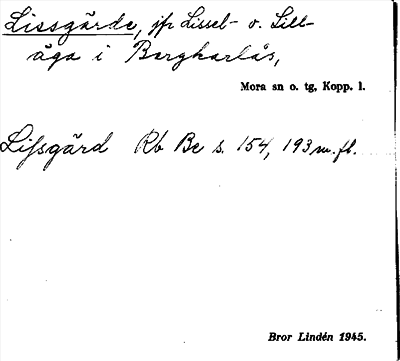 Lissgärde, jfr Lissel- o. Lill-
åga i Bergkarlås,
Mora sn o. tg, Kopp. l.
Lissgärd Rb Be s. 154, 193 m. fl.
Bror Lindén 1945.